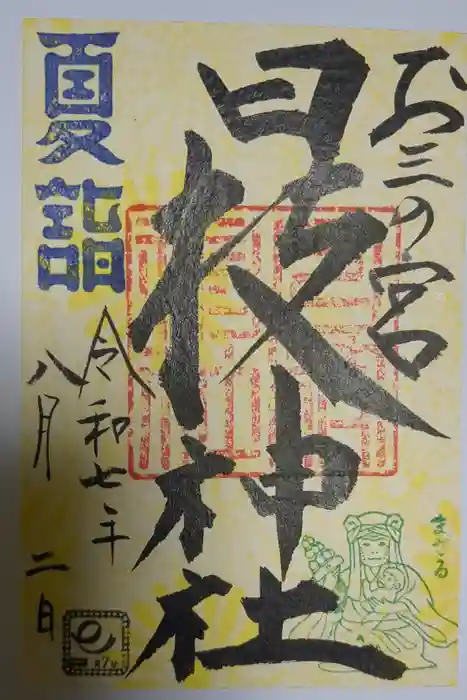 お三の宮
日枝神社
夏詣
令和七年
八月 二日
まさる
R7